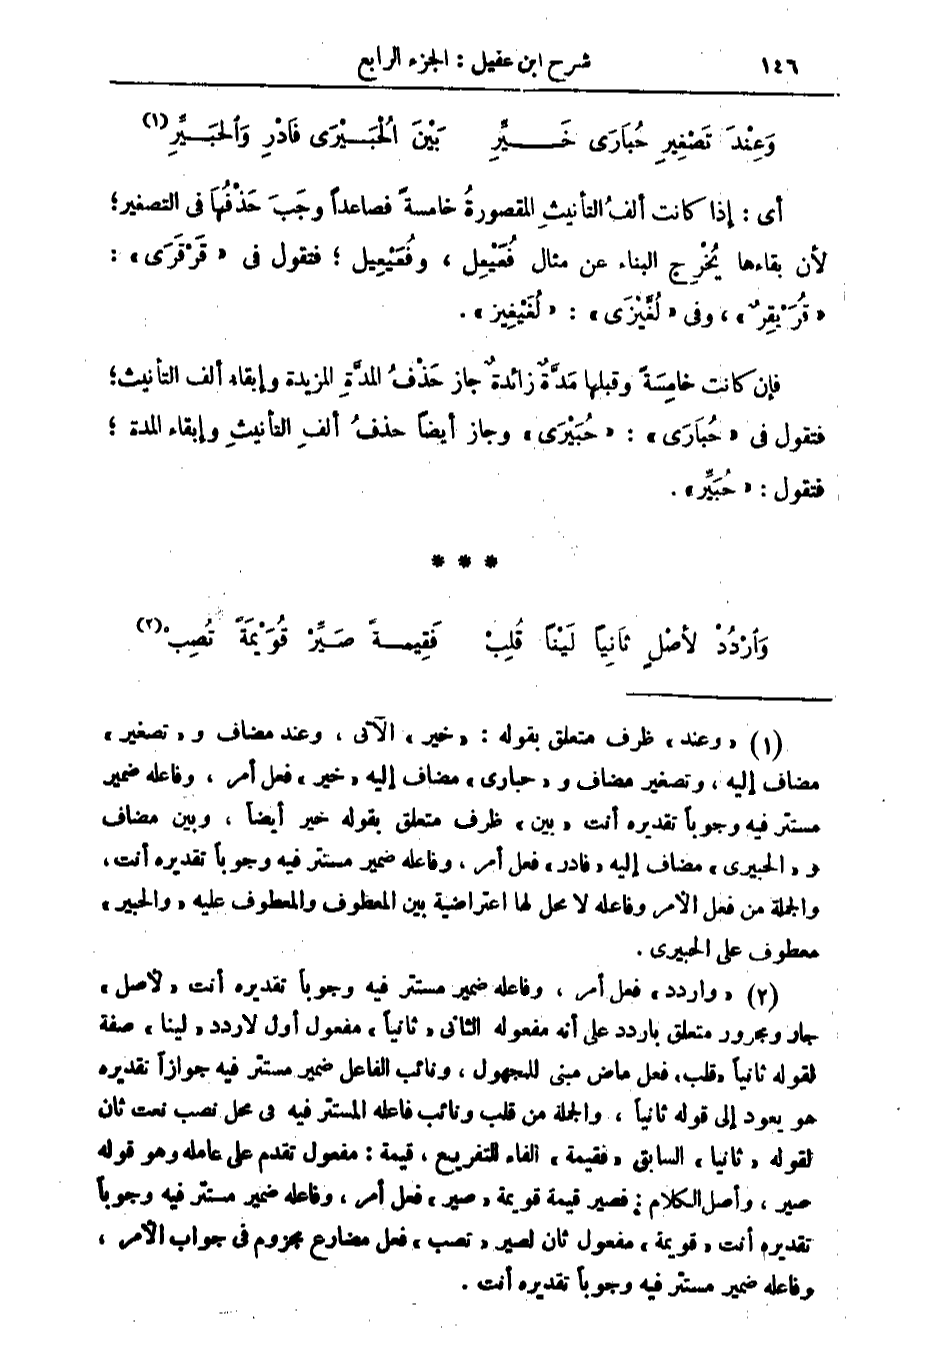 ١٤٦ شرح ابن عقيل : الجزء الرابع
وَعِنْدَ تَصْغِيرِ حُبَارَى خَــيِّرِ بَيْنَ الْحُبَــيْرَى فَادْرِ وَالْحُبَــيِّرِ (١)
أى : إذا كانت ألفُ التأنيثِ المقصورةُ خامسةً فصاعداً وجَبَ حَذْفُهَا فى التصغير؛
لأن بقاءها يُخْرِج البناء عن مثال فُعَيْعِل ، وفُعَيْعِيل ؛ فتقول فى « قَرْقَرَى » :
« قُرَيْقِرٌ » ، وفى « لُغَّيْزَى » : « لُغَيْغِيز » .
فإن كانت خامِسَةً وقبلها مَدَّةٌ زائدةٌ جاز حَذْفُ المدَّةِ المزيدة وإبقاء ألف التأنيث؛
فتقول فى « حُبَارَى » : « حُبَيْرَى » وجاز أيضاً حذفُ ألفِ التأنيثِ وإبقاء المدة ؛
فتقول : « حُبَيِّر » .
* * *
وَارْدُدْ لأَصْلٍ ثَانِياً لَيْناً قُلِبْ فَقِيمــةً صَــيِّرْ قُوَيْمَةً تُصِبْ (٢)
(١) « وعند » ظرف متعلق بقوله : « خير » الآتى ، وعند مضاف و « تصغير »
مضاف إليه ، وتصغير مضاف و « حبارى » مضاف إليه « خير » فعل أمر ، وفاعله ضمير
مستتر فيه وجوباً تقديره أنت « بين » ظرف متعلق بقوله خير أيضاً ، وبين مضاف
و « الحبيرى » مضاف إليه « فادر » فعل أمر ، وفاعله ضمير مستتر فيه وجوباً تقديره أنت ،
والجملة من فعل الأمر وفاعله لا محل لها اعتراضية بين المعطوف والمعطوف عليه « والحبير »
معطوف على الحبيرى .
(٢) « واردد » فعل أمر ، وفاعله ضمير مستتر فيه وجوباً تقديره أنت « لأصل »
جار ومجرور متعلق باردد على أنه مفعوله الثانى « ثانياً » مفعول أول لاردد « لينا » صفة
لقوله ثانياً « قلب » فعل ماض مبنى للمجهول ، ونائب الفاعل ضمير مستتر فيه جوازاً تقديره
هو يعود إلى قوله ثانياً ، والجملة من قلب ونائب فاعله المستتر فيه فى محل نصب نعت ثان
لقوله « ثانيا » السابق « فقيمة » الفاء للتفريع ، قيمة : مفعول تقدم على عامله وهو قوله
صير ، وأصل الكلام : فصير قيمة قويمة « صير » فعل أمر ، وفاعله ضمير مستتر فيه وجوباً
تقديره أنت « قويمة » مفعول ثان لصير « تصب » فعل مضارع مجزوم فى جواب الأمر ،
وفاعله ضمير مستتر فيه وجوباً تقديره أنت .